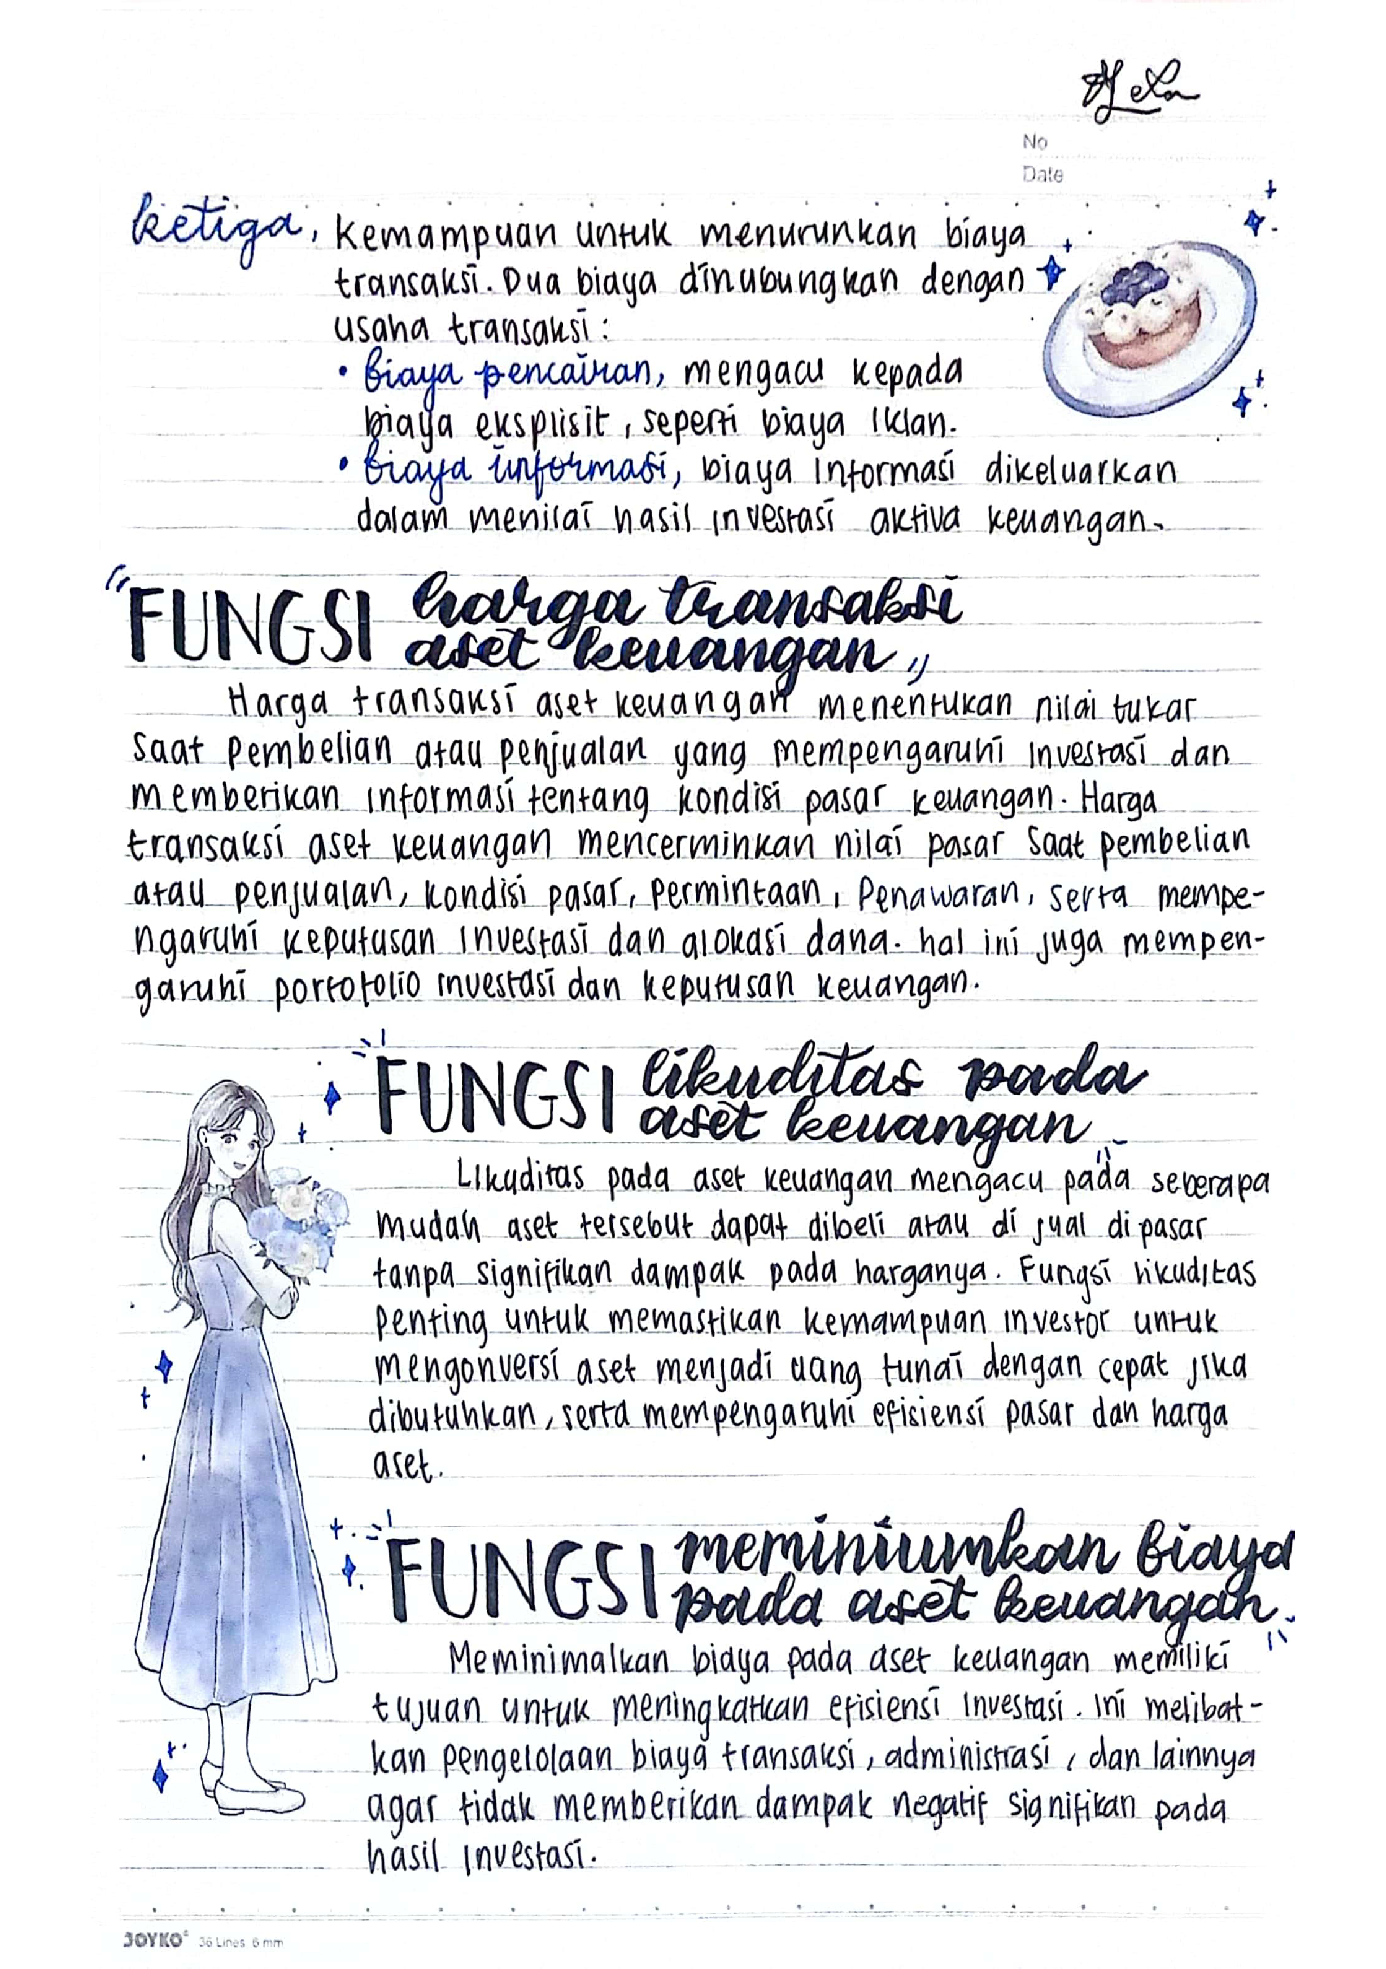 No
Date
ketiga, kemampuan untuk menurunkan biaya
transaksi. Dua biaya dihubungkan dengan
usaha transaksi :
• biaya pencairan, mengacu kepada
biaya eksplisit, seperti biaya iklan.
• biaya informasi, biaya informasi dikeluarkan
dalam menilai hasil investasi aktiva keuangan.
"FUNGSI harga transaksi
aset keuangan"
Harga transaksi aset keuangan menentukan nilai tukar
saat pembelian atau penjualan yang mempengaruhi investasi dan
memberikan informasi tentang kondisi pasar keuangan. Harga
transaksi aset keuangan mencerminkan nilai pasar saat pembelian
atau penjualan, kondisi pasar, permintaan, Penawaran, serta mempe-
ngaruhi keputusan investasi dan alokasi dana. hal ini juga mempen-
garuhi portofolio investasi dan keputusan keuangan.
FUNGSI likuditas pada
aset keuangan
Likuditas pada aset keuangan mengacu pada seberapa
mudah aset tersebut dapat dibeli atau di jual di pasar
tanpa signifikan dampak pada harganya. Fungsi likuditas
penting untuk memastikan kemampuan investor untuk
mengonversi aset menjadi uang tunai dengan cepat jika
dibutuhkan, serta mempengaruhi efisiensi pasar dan harga
aset.
FUNGSI meminiumkan biaya
pada aset keuangan
Meminimalkan biaya pada aset keuangan memiliki
tujuan untuk meningkatkan efisiensi investasi. Ini melibat-
kan pengelolaan biaya transaksi, administrasi, dan lainnya
agar tidak memberikan dampak negatif signifikan pada
hasil investasi.
JOYKO® 36 Lines 6 mm